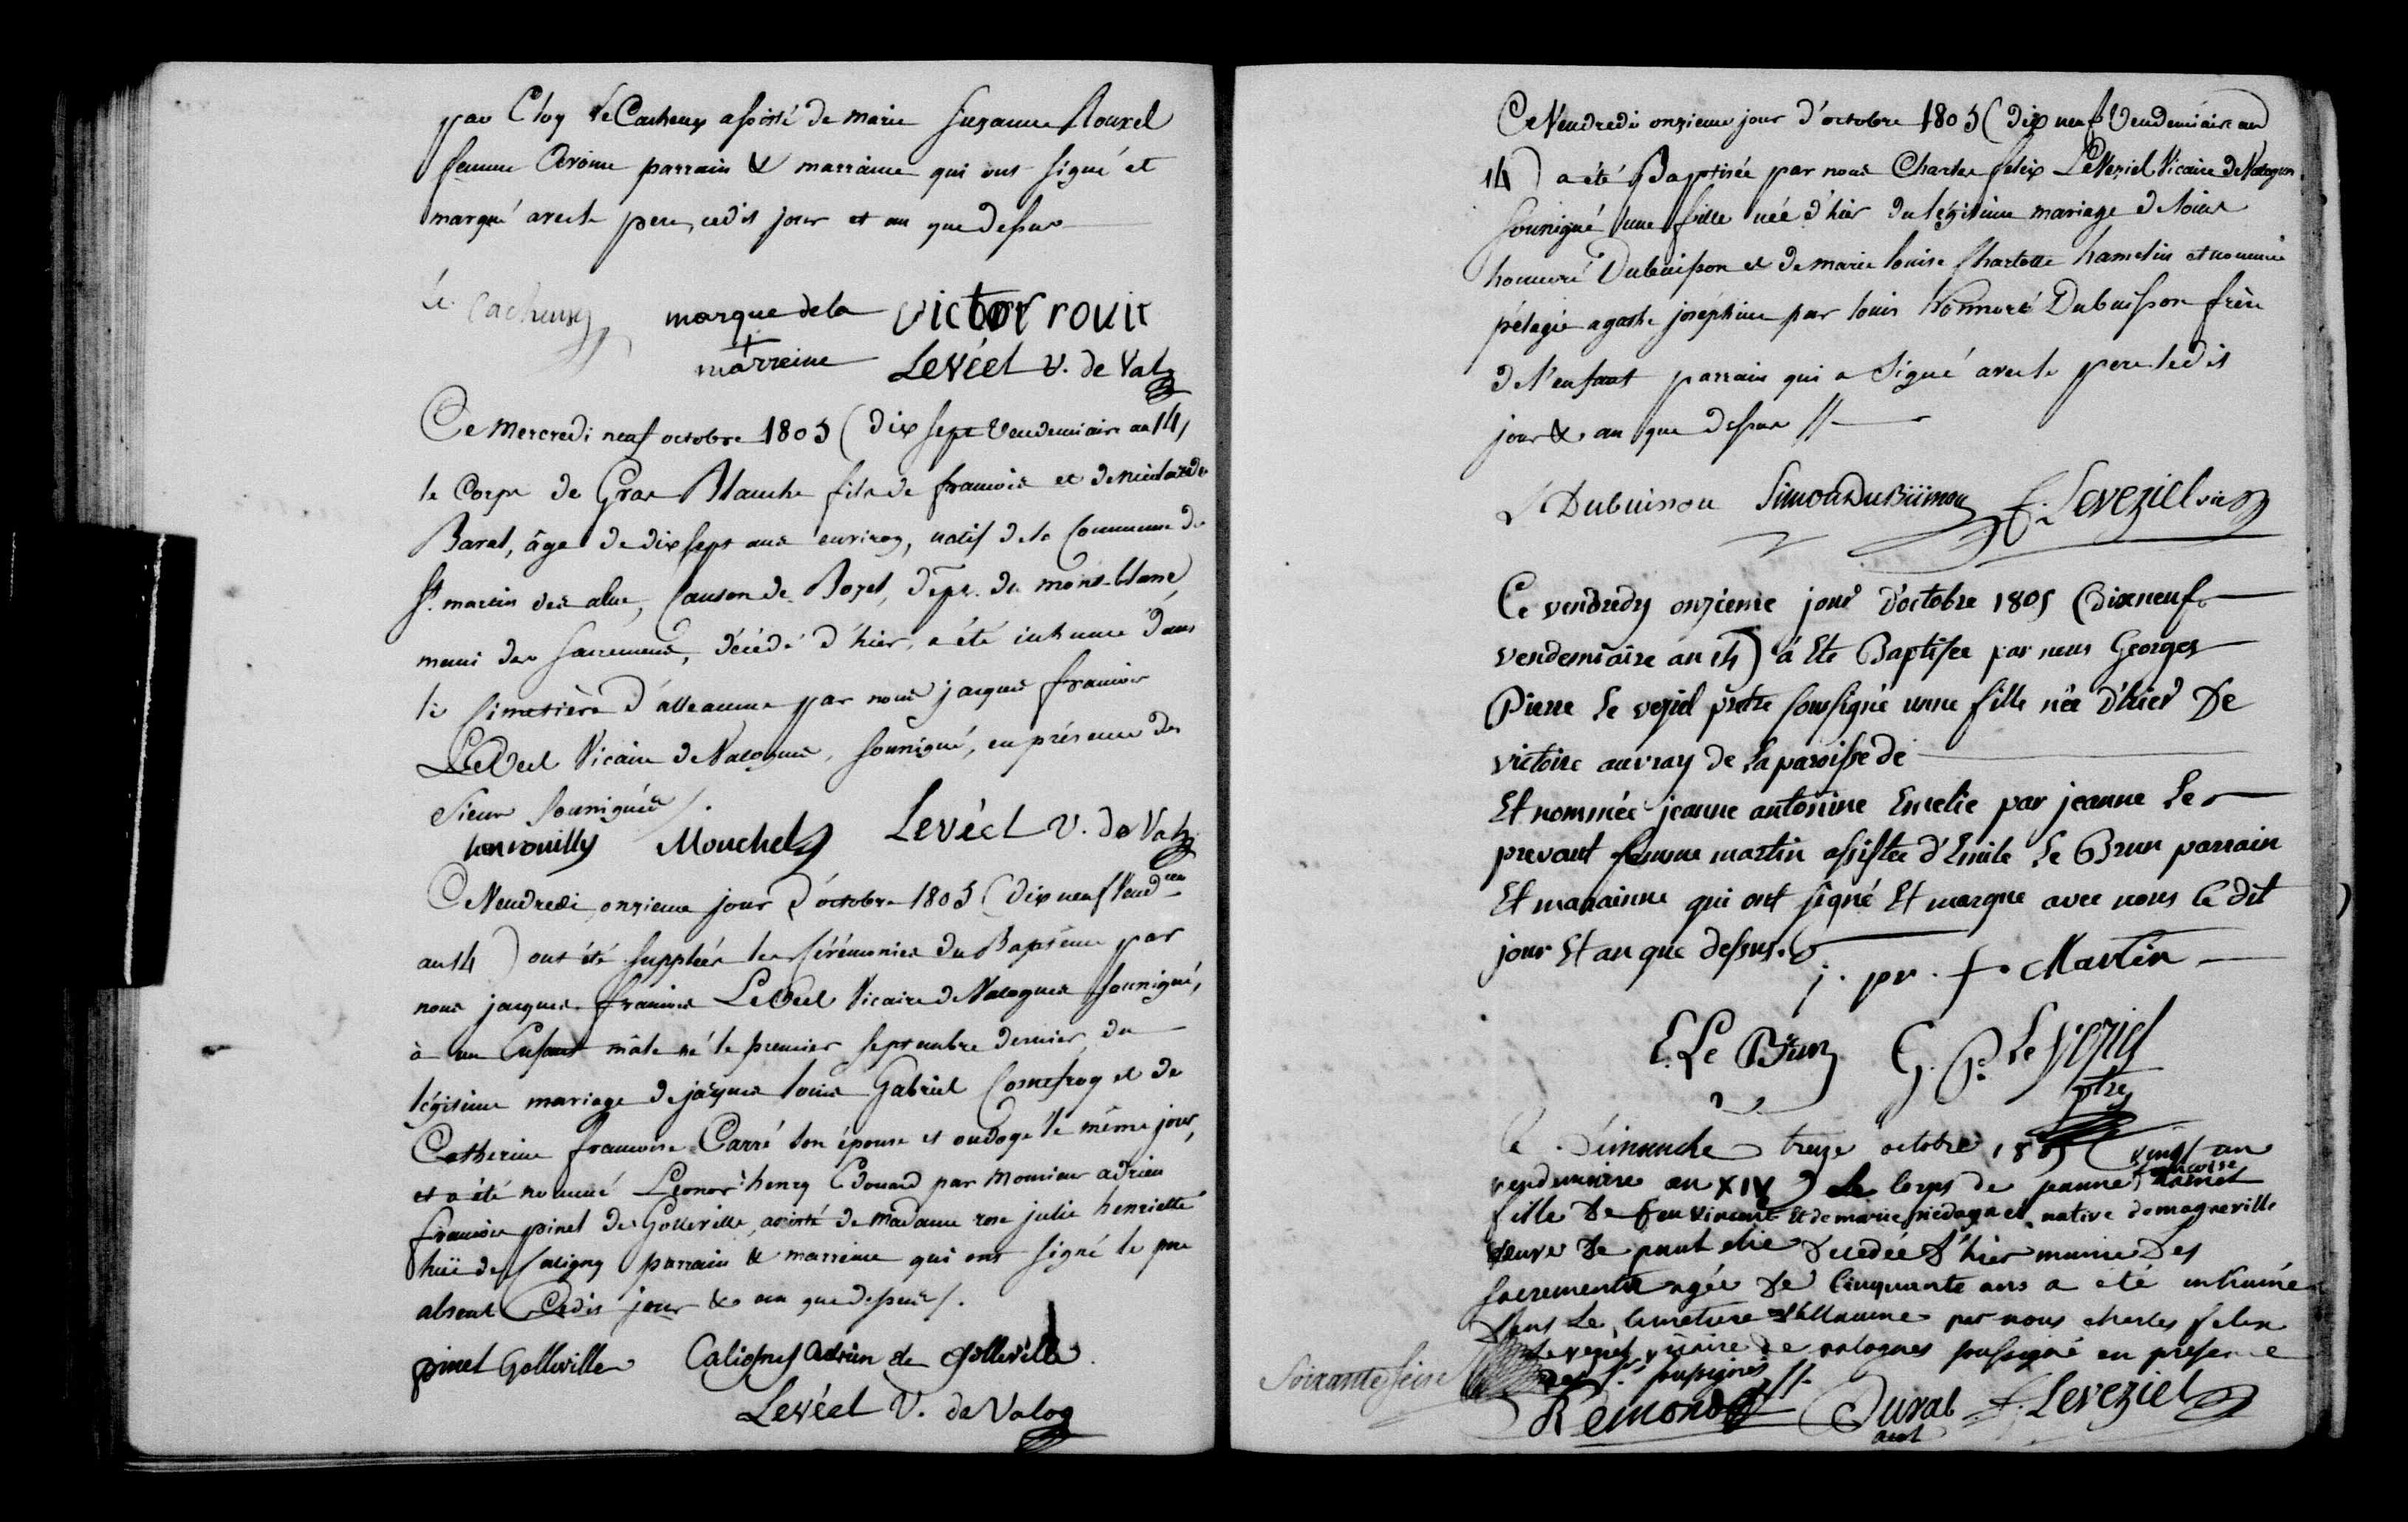 par Eloy LeCacheux assisté de marie Suzanne Rouxel
femme Avoine parrain & marraine qui ont signé et
marqué avec le pere, cedit jour et an que dessus
le Cacheux marque de la victor rouit
+
marreine Levéel v. de Val
Ce Mercredi neuf octobre 1805 (dix sept Vendemiaire an 14)
le Corps de Gras Blanche fils de francois et de
Baral, âge de dix sept ans environ, natif de la Commune de
St. martin des alue, Canton de Bozel, dept. du mont-blanc,
muni des sacremens, décédé d'hier, a été inhumé dans
le Cimetière d'alleaume par nous jacques francois
LeVéel Vicaire de Valognes, soussigné, en présence des
Sieurs soussignés /.
Mouchel Levéel V. de Val
Ce Vendredi onzieme jour d'octobre 1805 (dix neuf Vendre
an 14) ont été suppléés les Cérémonies du Baptême par
nous jacques francois LeVéel Vicaire de Valognes soussigné,
à un Enfant mâle né le premier septembre dernier, du
légitime mariage de jacques louis Gabriel Cornefroy et de
Catherine francoise Carré son épouse et ondoyé le même jour,
et a été nommé Leonor henry Edouard par Monsieur adrien
francois pinel de Golleville, assisté de Madame rose julie henriette
hüe de Caligny parrain & marreine qui ont signé le pere
absent Cedit jour & an que dessus /.
pinel Golleville Caligny Adrien de Golleville
Levéel V. de Valog
Ce Vendredi onzieme jour d'octobre 1805 (dix neuf Vendemiaire an
14) a été Baptisée par nous Charles felix LeVeziel Vicaire de Valognes
soussigné une fille née d'hier du légitime mariage de louis
honnoré Dubuisson et de marie louise Charlotte hamelin et nommée
pélagie agathe joséphine par louis Honnoré Dubuisson frère
de l'enfant parrain qui a signé avec le pere ledit
jour & an que dessus //
L Dubuisson Simon Dubuisson f. Leveziel vic
Ce vendredy onzieme jour d'octobre 1805 (dixneuf
vendemiaire an 14) à Ete Baptisée par nous Georges
Pierre Le veziel prêtre soussigné une fille née d'hier De
victoire auvray de la paroisse de
Et nommée jeanne antonine Emelie par jeanne Le
prevost femme martin assistée d'Emile Le Brun parrain
Et maraine qui ont signé Et marque avec nous Ce dit
jour Et an que dessus.
j. pv. f. Martin
E. Le Brun G. P. Le Veziel
ptre
le Dimanche treize octobre 1805 (vingt un
francoise
vendemiaire an XIV) Le Corps de jeanne hamel
fille De feu vincent Et de marie piedagnel native de magneville
veuve De paul elie Decedée D'hier munie Des
sacrements agée De Cinquante ans a eté inhumée
Dans Le Cimetiere D'alleaume par nous charles felix
Le veziel vicaire de valognes soussigné en presence
Des Srs soussignés //.
Soixante seize
Remond Duval f. Leveziel
acol